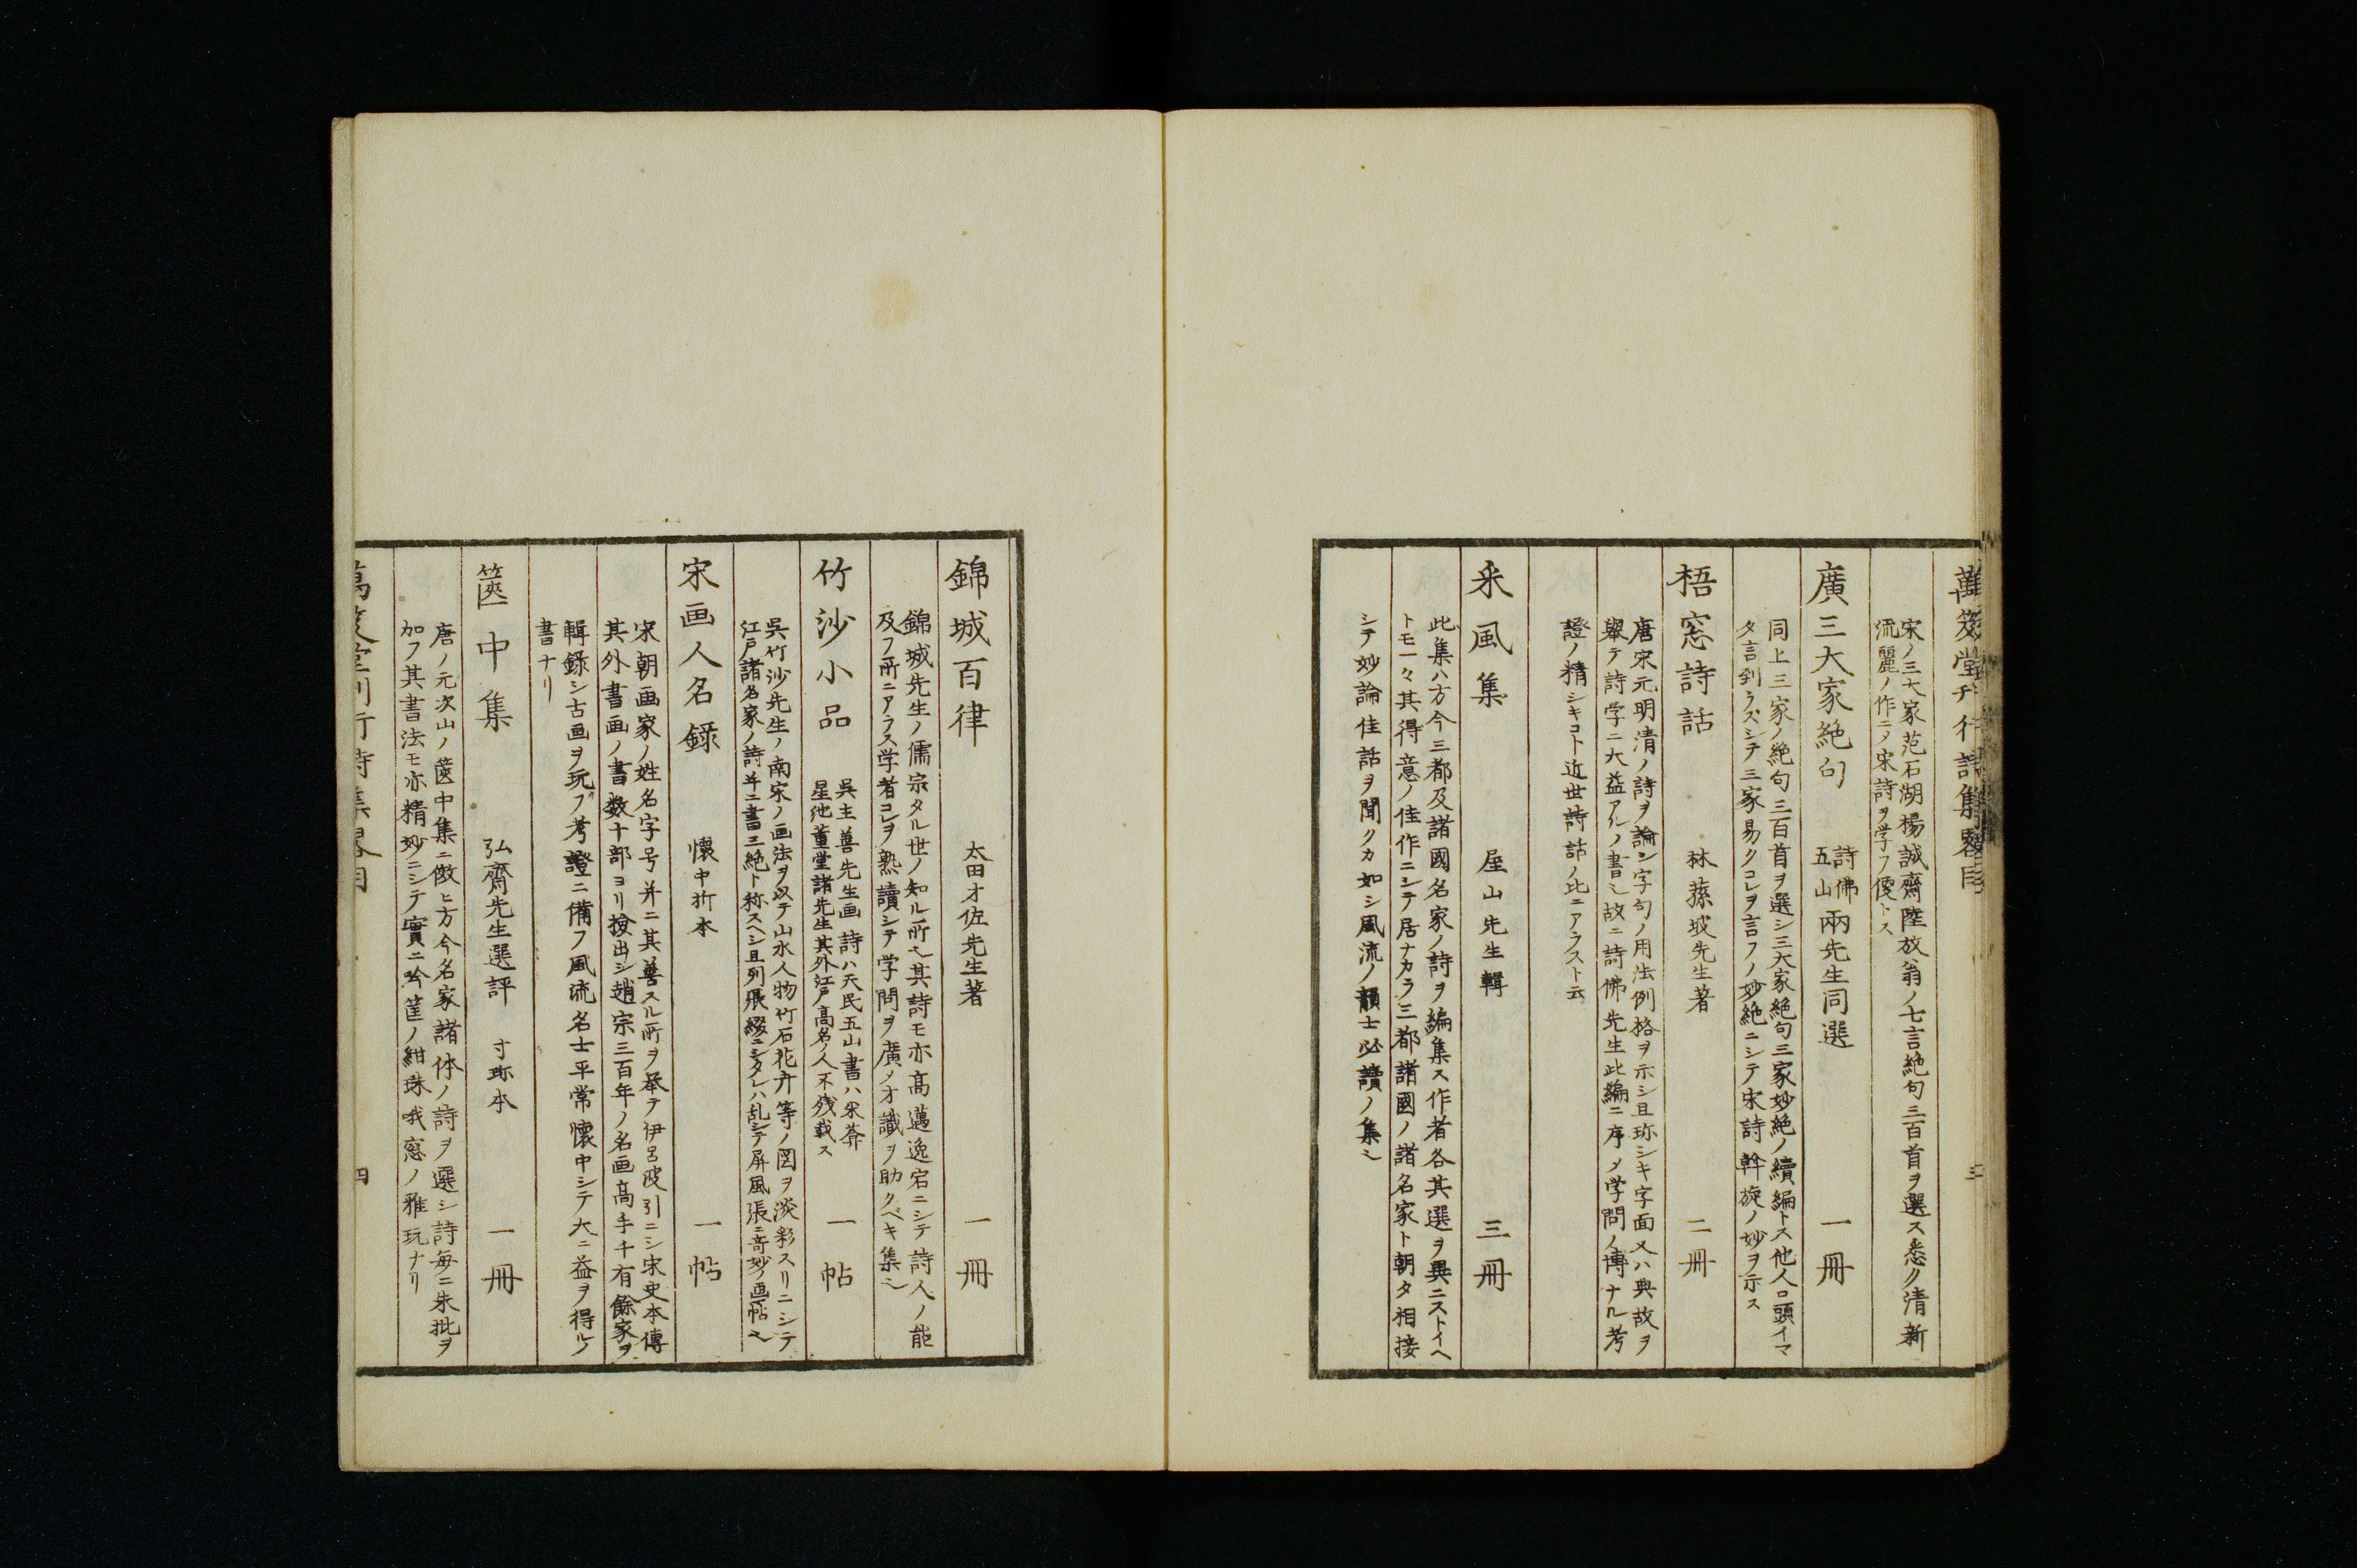 萬笈堂刊行詩集畧目 三
宋ノ三大家范石湖楊誠齋陸放翁ノ七言絶句三百首ヲ選ス悉ク清新
流麗ノ作ニメ宋詩ヲ学フ便トス
廣三大家絶句 詩佛五山兩先生同選 一冊
同上三家ノ絶句三百首ヲ選シ三大家絶句三家妙絶ノ續編トス他人口頭イマ
タ言到ラズシテ三家易クコレヲ言フノ妙絶ニシテ宋詩幹旋ノ妙ヲ示ス
梧窓詩話 林蓀坡先生著 二冊
唐宋元明清ノ詩ヲ論シ字句ノ用法例格ヲ示シ且珎シキ字面又ハ典故ヲ
舉テ詩学ニ大益アルノ書也故ニ詩佛先生此編ニ序メ学問ノ博ナル考
證ノ精シキコト近世詩話ノ此ニアラスト云
釆風集 屋山先生輯 三冊
此集ハ方今三都及諸國名家ノ詩ヲ編集ス作者各其選ヲ異ニストイヘ
トモ一々其得意ノ佳作ニシテ居ナカラ三都諸國ノ諸名家ト朝夕相接
シテ妙論佳話ヲ聞クカ如シ風流ノ韻士必讀ノ集也
錦城百律 太田才佐先生著 一冊
錦城先生ノ儒宗タル世ノ知ル所也其詩モ亦高邁逸宕ニシテ詩人ノ能
及フ所ニアラス学者コレヲ熟讀シテ学問ヲ廣メ才識ヲ助クベキ集也
竹沙小品 呉主善先生画 詩ハ天民五山書ハ米菴
星池董堂諸先生其外江戸高名ノ人不残載ス 一帖
呉竹沙先生ノ南宋ノ画法ヲ以テ山水人物竹石花卉等ノ図ヲ淡彩スリニシテ
江戸諸名家ノ詩并ニ書三絶ト称スヘシ且列張綴ニシタレハ乱シテ屏風張ニ奇妙ノ画帖也
宋画人名録 懐中折本 一帖
宋朝画家ノ姓名字号并ニ其善スル所ヲ挙テ伊呂波引ニシ宋史本傳
其外書画ノ書数十部ヨリ搜出シ趙宗三百年ノ名画高手千有餘家ヲ
輯録シ古画ヲ玩フ考證ニ備フ風流名士平常懐中シテ大ニ益ヲ得ルノ
書ナリ
篋中集 弘齋先生選評 寸珎本 一冊
唐ノ元次山ノ篋中集ニ倣ヒ方今名家諸体ノ詩ヲ選シ詩毎ニ朱批ヲ
加フ其書法モ亦精妙ニシテ實ニ吟筐ノ紺珠哦窓ノ雅玩ナリ
萬笈堂刊行詩集畧目 四